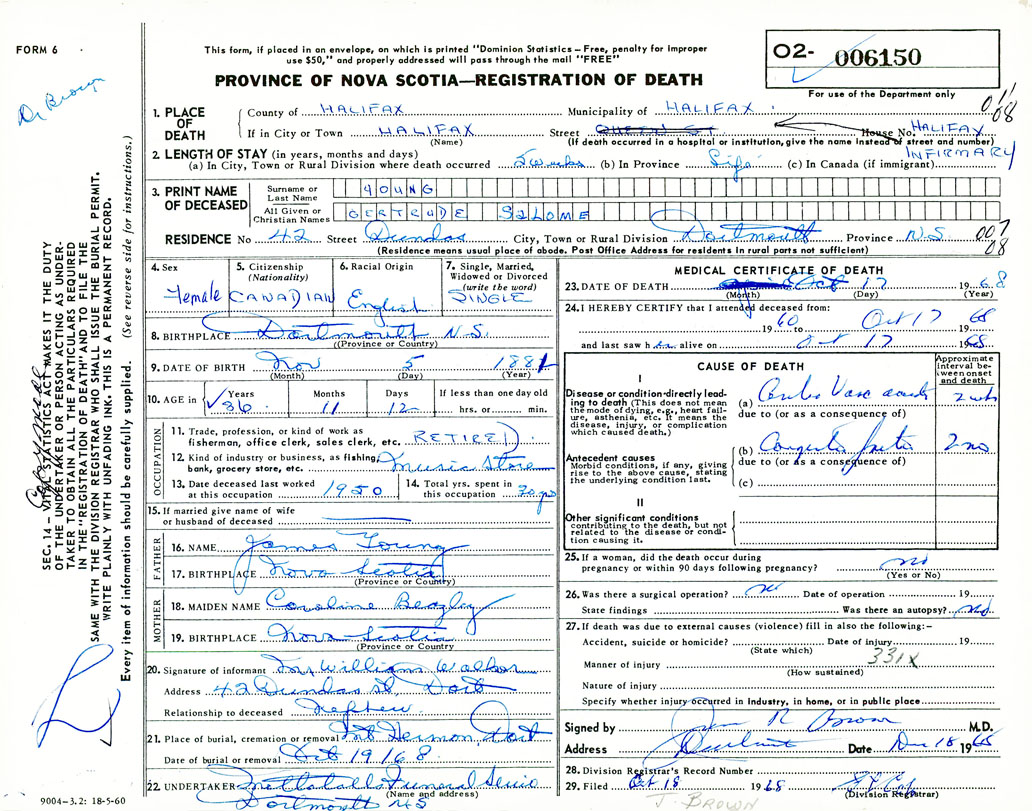 FORM 6
Dr Brown
This form, if placed in an envelope, on which is printed "Dominion Statistics – Free, penalty for improper
use $50," and properly addressed will pass through the mail "FREE"
PROVINCE OF NOVA SCOTIA—REGISTRATION OF DEATH
02- 006150
For use of the Department only
011
08
1. PLACE OF DEATH
County of HALIFAX Municipality of HALIFAX
If in City or Town HALIFAX Street QUEEN ST House No. HALIFAX INFIRMARY
(Name) (If death occurred in a hospital or institution, give the name instead of street and number)
2. LENGTH OF STAY (in years, months and days)
(a) In City, Town or Rural Division where death occurred (b) In Province Life (c) In Canada (if immigrant)
3. PRINT NAME OF DECEASED
Surname or Last Name YOUNG
All Given or Christian Names GERTRUDE SALOME
RESIDENCE No 42 Street Dundas City, Town or Rural Division Dartmouth Province N.S.
007
08
(Residence means usual place of abode. Post Office Address for residents in rural parts not sufficient)
4. Sex Female
5. Citizenship (Nationality) CANADIAN
6. Racial Origin English
7. Single, Married, Widowed or Divorced (write the word) SINGLE
8. BIRTHPLACE Dartmouth N.S.
(Province or Country)
9. DATE OF BIRTH Nov 5 1881
(Month) (Day) (Year)
10. AGE in Years 86 Months 11 Days 12 If less than one day old hrs. or min.
OCCUPATION
11. Trade, profession, or kind of work as
fisherman, office clerk, sales clerk, etc. RETIRED
12. Kind of industry or business, as fishing,
bank, grocery store, etc. Music Store
13. Date deceased last worked
at this occupation 1950
14. Total yrs. spent in
this occupation 30 yrs
15. If married give name of wife
or husband of deceased
FATHER
16. NAME James Young
17. BIRTHPLACE Nova Scotia
(Province or Country)
MOTHER
18. MAIDEN NAME Caroline Beazley
19. BIRTHPLACE Nova Scotia
(Province or Country
20. Signature of informant William Walker
Address 42 Dundas St. Dart
Relationship to deceased Nephew
21. Place of burial, cremation or removal Mt Hermon, Dart
Date of burial or removal Oct 19 1968
22. UNDERTAKER Funeral Service
(Name and address)
Dartmouth NS
9004—3.2: 18-5-60
SEC. 14 – VITAL STATISTICS ACT MAKES IT THE DUTY
OF THE UNDERTAKER OR PERSON ACTING AS UNDER-
TAKER TO OBTAIN ALL THE PARTICULARS REQUIRED
IN THE "REGISTRATION OF DEATH" AND TO FILE THE
SAME WITH THE DIVISION REGISTRAR WHO SHALL ISSUE THE BURIAL PERMIT.
WRITE PLAINLY WITH UNFADING INK. THIS IS A PERMANENT RECORD.
Every item of information should be carefully supplied. (See reverse side for instructions.)
MEDICAL CERTIFICATE OF DEATH
23. DATE OF DEATH Oct 17 1968
(Month) (Day) (Year)
24. I HEREBY CERTIFY that I attended deceased from:
1960 to Oct 17 1968
and last saw her alive on Oct 17 1968
CAUSE OF DEATH
Approximate interval between onset and death
I
Disease or condition-directly lead-
ing to death (This does not mean
the mode of dying, e.g., heart fail-
ure, asthenia, etc. It means the
disease, injury, or complication
which caused death.)
(a) 2 wks
due to (or as a consequence of)
(b) 2 mo
due to (or as a consequence of)
(c)
Antecedent causes
Morbid conditions, if any, giving
rise to the above cause, stating
the underlying condition last.
II
Other significant conditions
contributing to the death, but not
related to the disease or condi-
tion causing it.
25. If a woman, did the death occur during
pregnancy or within 90 days following pregnancy? no
(Yes or No)
26. Was there a surgical operation? no Date of operation 19
State findings Was there an autopsy? no
27. If death was due to external causes (violence) fill in also the following:-
Accident, suicide or homicide? Date of injury 19
(State which)
331X
Manner of injury
(How sustained)
Nature of injury
Specify whether injury occurred in Industry, in home, or in public place
Signed by R Brown M.D.
Address Date 18 1968
28. Division Registrar's Record Number
29. Filed Oct 18 1968
(Division Registrar)
J. BROWN